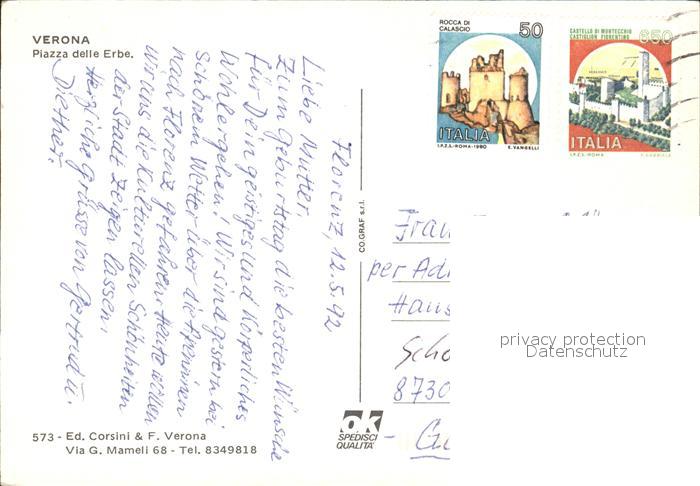 VERONA
Piazza delle Erbe.
ROCCA DI
CALASCIO
50
ITALIA
I.P.Z.S.-ROMA-1980
E. VANGELLI
CASTELLO DI MONTECCHIO
CASTIGLION FIORENTINO
650
ITALIA
I.P.Z.S.-ROMA
Florenz, 12.5.92
Liebe Mutter.
Zum Geburtstag die besten Wünsche
für Dein geistiges und Körperliches
Wohlergehen! Wir sind gestern bei
Schönem Wetter über die Apeninen
nach Florenz gefahren. Heute wollen
wir uns die Kulturellen Schönheiten
der Stadt zeigen lassen.
Herzliche Grüsse von Gertrud u.
Diether.
CO.GRAF s.r.l.
Frau
per Ad
Hans
Scho
8730
privacy protection
Datenschutz
ok
SPEDISCI
QUALITA'
573 - Ed. Corsini & F. Verona
Via G. Mameli 68 - Tel. 8349818